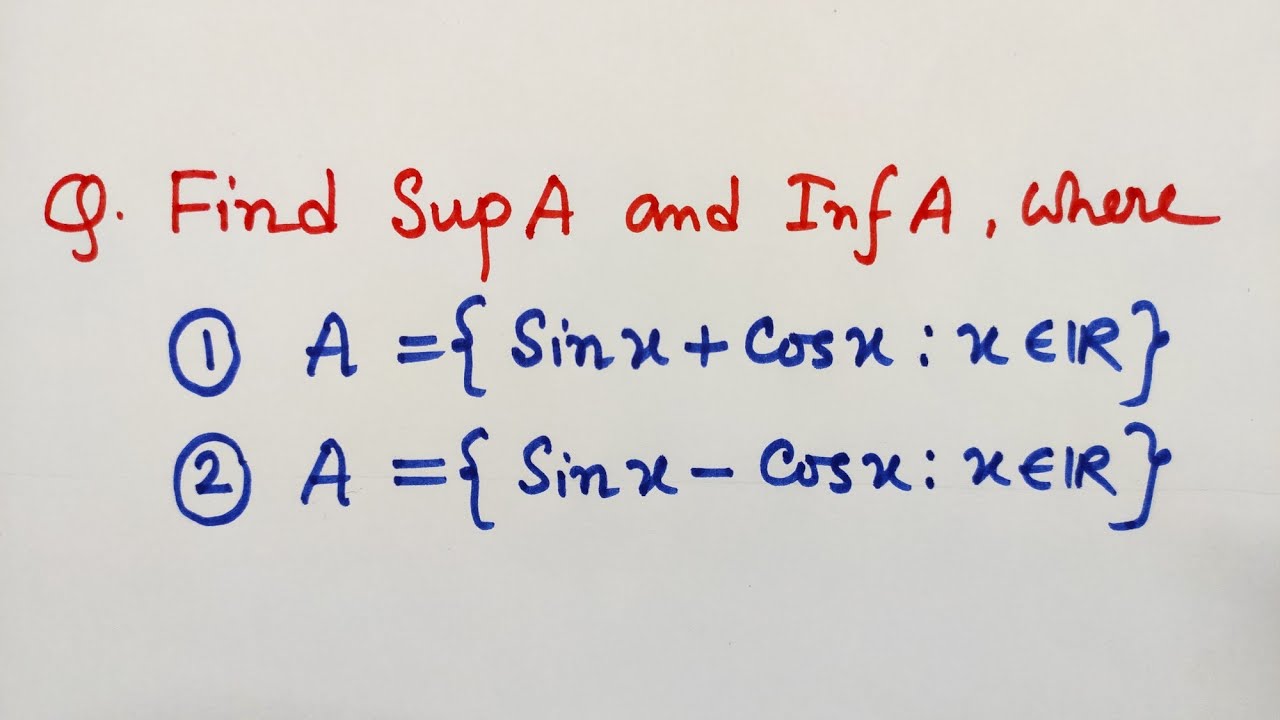 Q. Find Sup A and Inf A, where
① A = { Sin x + Cos x : x ∈ ℝ }
② A = { Sin x - Cos x : x ∈ ℝ }